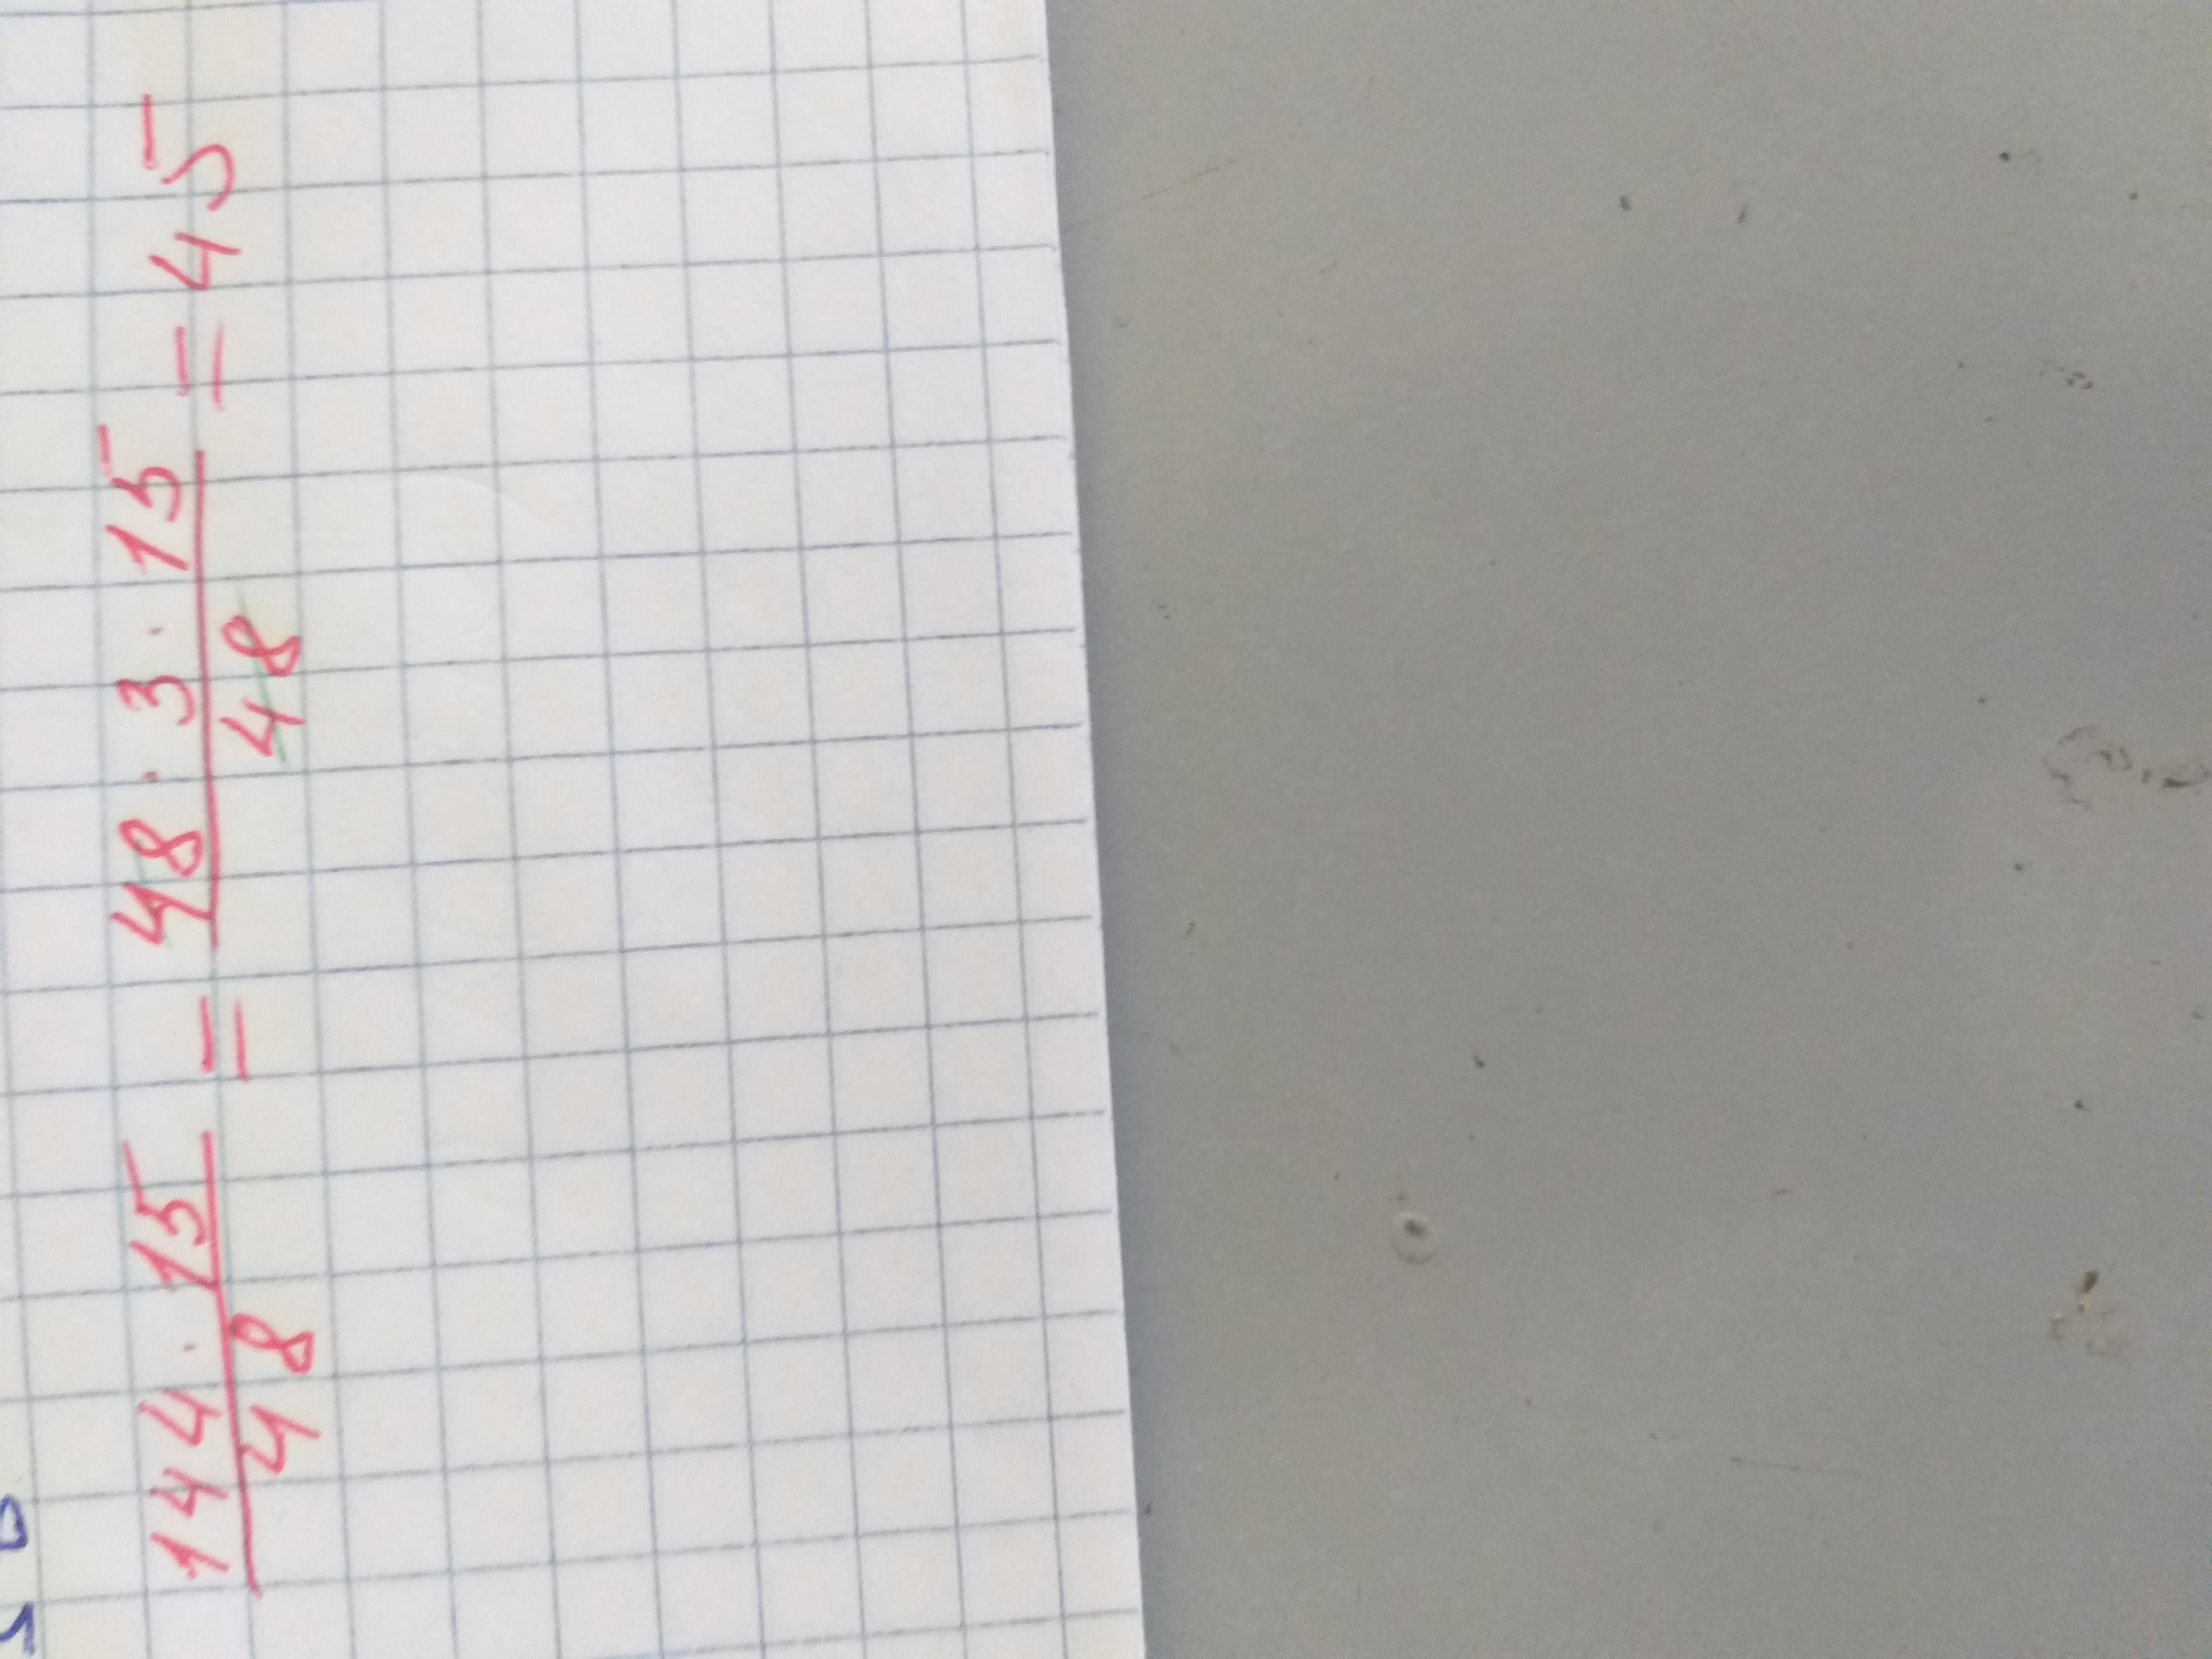 144 · 15 / 48 = 48 · 3 · 15 / 48 = 45